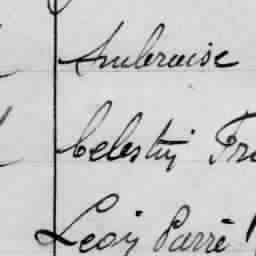 Ambroise
Celestin
Léon Parré